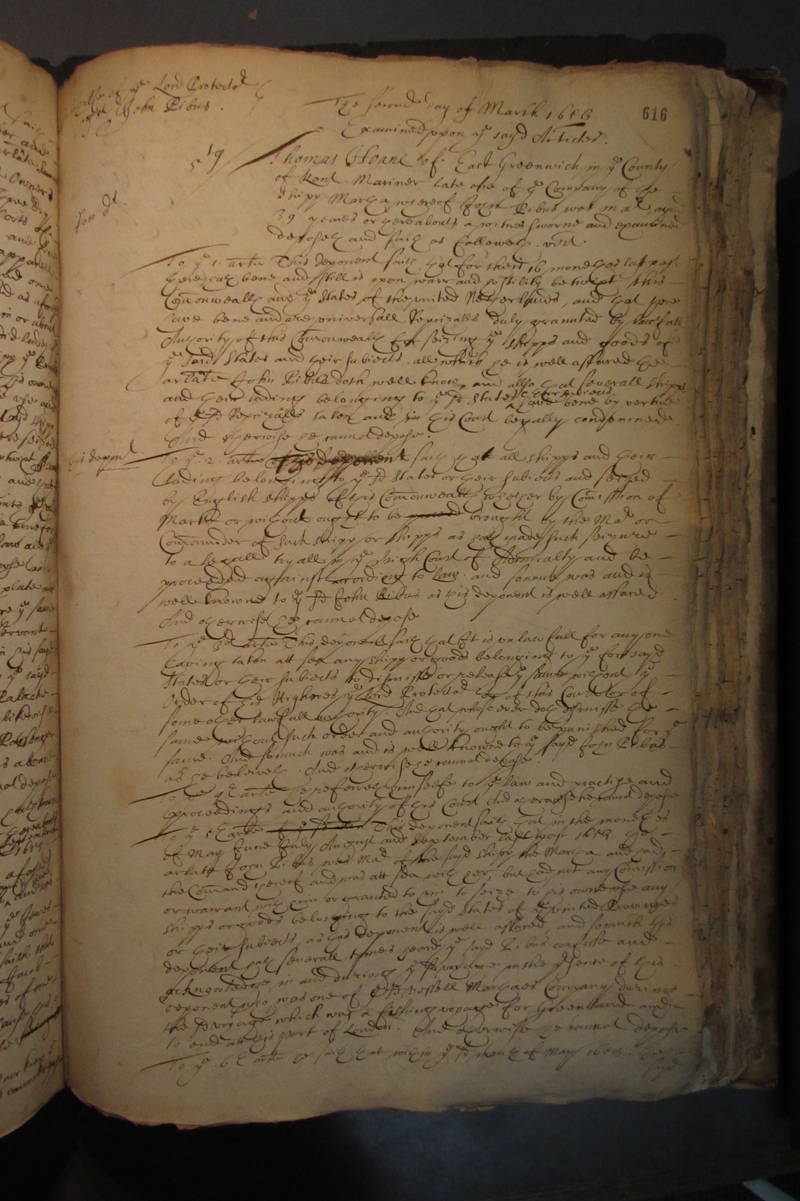 Lord Protector
John Pibus
The second day of March 1653
616
Examined upon ye sayd Articles.
Thomas of East Greenwich in ye County
of Kent Mariner late one of ye Company of the
shipp Marga whereof John Pibus was Mar aged
39 yeares or thereabouts a witnes sworne and examined
deposeth and saith as followeth. vizt.
To ye 1 arte This deponent saith that for theis 16 moneths last past
there hath bene and still is open warr and hostility betwixt this
Comonwealth and ye States of the united Netherlands, and that there
have bene and are universall Reprizalls duly graunted by lawfull
Authority of this Comonwealth for seizing ye shipps and goods of
ye said States and their subiects. all which he is well assured the
arlate John Pibus doth well know, and allso that severall shipps
and their ladings belonging to ye sd States & their subiects have bene by vertue
of Reprizalls taken and in this Court legally condemned.
And otherwise he cannot depose.
To ye 2 arte saith that all shipps and their
lading belonging to ye sd States or their subiects and seized
by English shipps of this Comonwealth whether by Comission of
Marke or without ought to be brought by the Mar or
Comander of such shipp or shipps as hath made such seizure
to a legall tryall in ye high Court of Admiralty and be
proceeded against according to law. and soemuch was and is
well knowne to ye sd John Pibus as this deponent is well assured
And otherwise he cannot depose
To ye 3d arte This deponent saith that it is unlawfull for any one
having taken att sea any shipp or goods belonging to ye foresayd
States or their subiects to dismisse or release ye same without ye
Order of his Highnes ye Lord Protector or of this Court or of
some other lawfull authority. And that whosoever doth dismisse the
same without such order and authority ought to be punished for ye
same. And soemuch was and is well knowne to ye sayd John Pibus
as he beleiveth. And otherwise he cannot depose.
To ye 4 arte he referreth himselfe to ye law and practize and
proceedings and authority of this Court and otherwise he cannot depose
To ye 5 arte This deponent saith that in the moneths
of May June July August and September last past 1653 the
arlate John Pibus was Mar of the sayd shipp the Marga and had
the Comand thereof and was att sea with her, but had not any Comission
or warrant with him or graunted to him to seize to his owne use any
shipps or goods belonging to the sayd States of ye united Provinces
or their subiects, as this deponent is well assured, and soemuch this
deponent hath severall times heard ye sayd Pibus confesse and
acknowledge in and during ye sd voyage in the presence of this
deponent who was one of ye sd vessell Margaes Company during
the sd voyage which was a fishing voyage for Greenland and
to end att this port of London. And otherwise he cannot depose
To ye 6th arte he saith that within ye sd month of May 1653 the